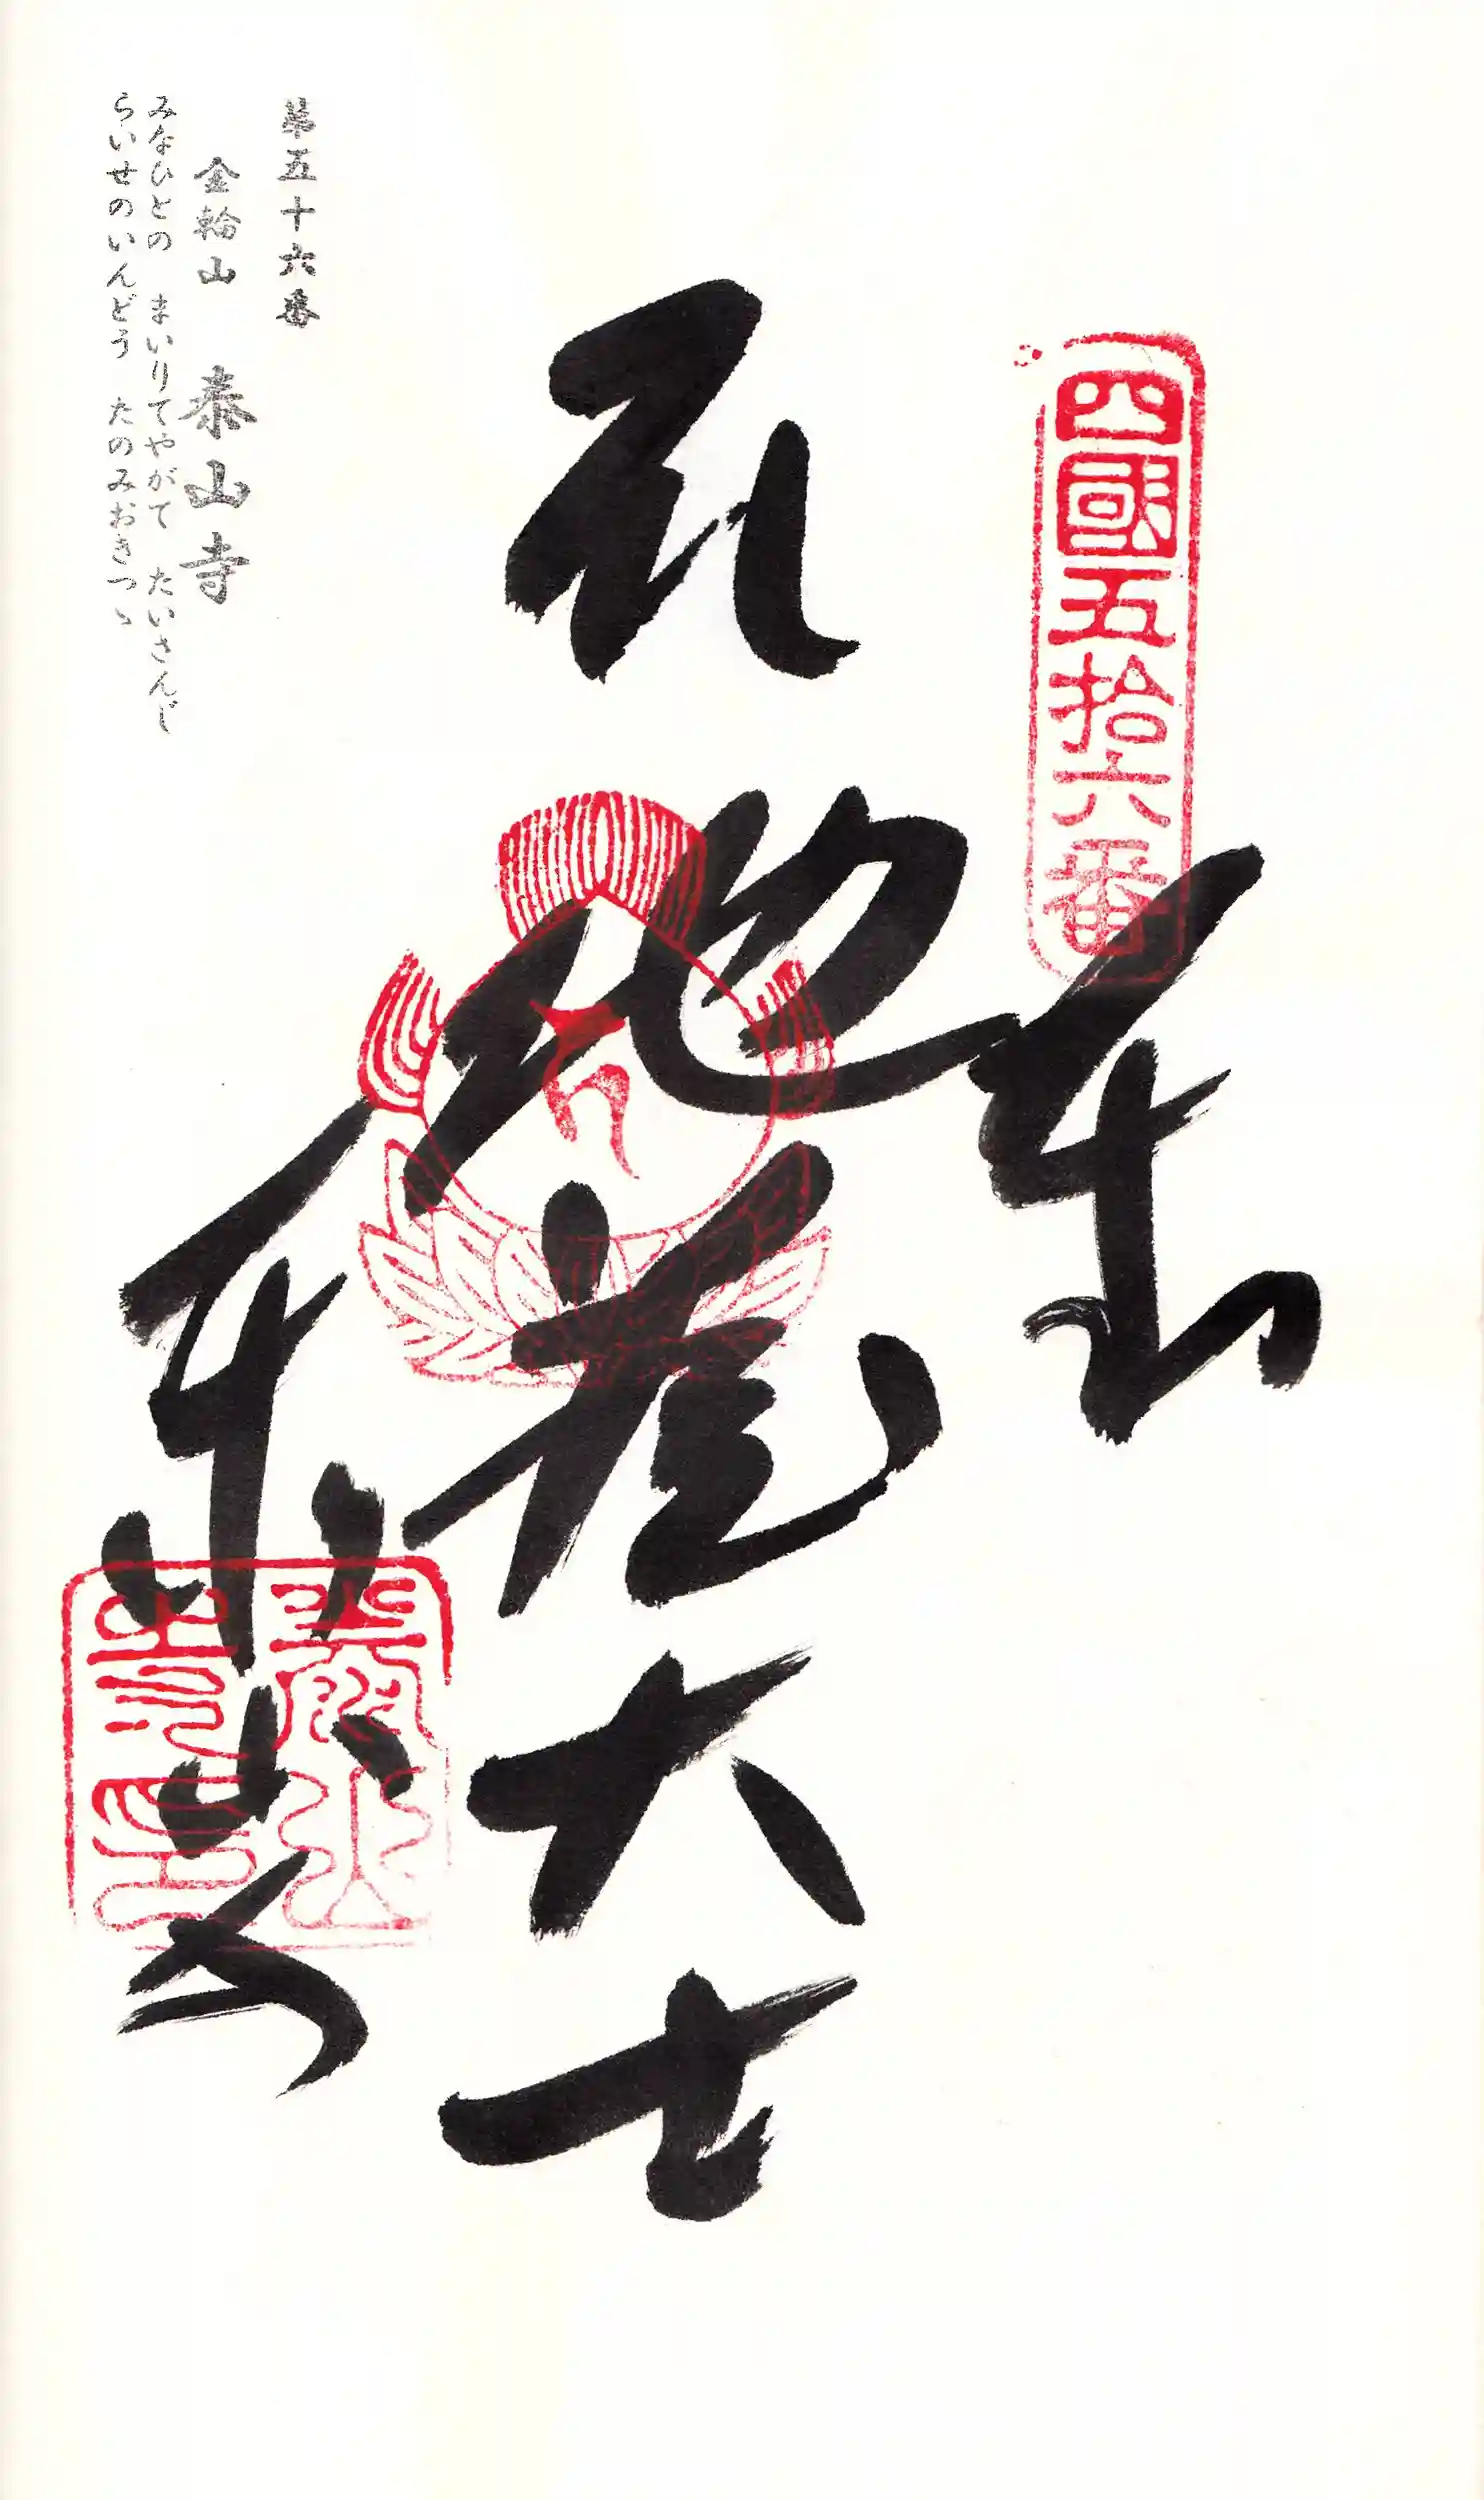 四國五拾六番
奉
地蔵大士
泰山寺
第五十六番
金輪山 泰山寺
みなひとの まいりてやがて たいさんじ
らいせのいんどう たのみおきつゝ